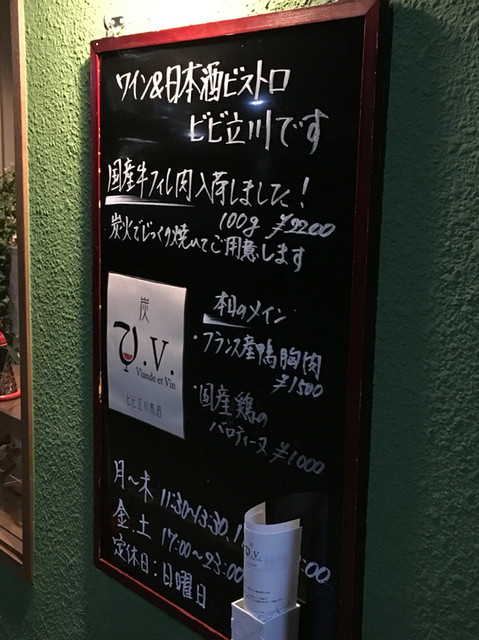 ワイン&日本酒ビストロ
ビビ立川です
国産牛フィレ肉入荷しました!
100g ¥2200
炭火でじっくり焼いてご用意します
炭
V.V.
Viande et Vin
ビビ立川髙店
本日のメイン
・フランス産鴨胸肉
¥1500
・国産鶏の
バロティーヌ ¥1000
月〜木 11:30〜13:30
金、土 17:00〜23:00
定休日:日曜日